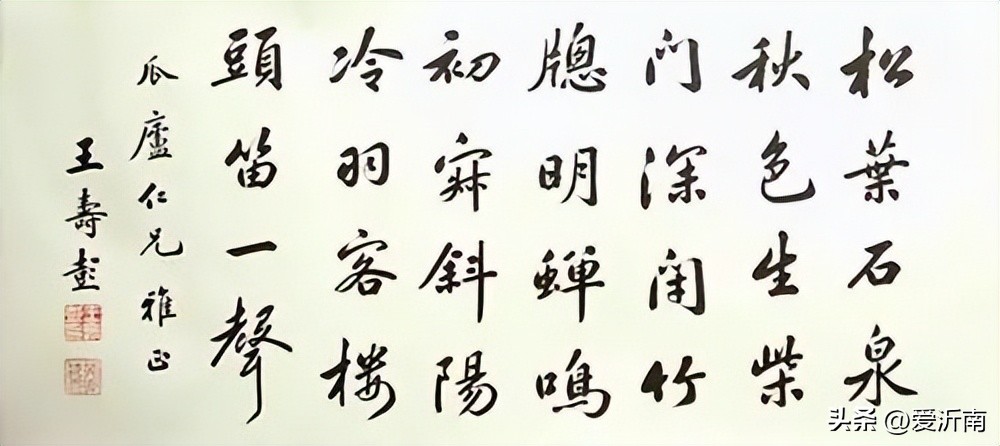 松葉石泉
秋色生柴
門深閉竹
牕明蟬鳴
初寂斜陽
冷羽客楼
頭笛一聲
瓜廬仁兄雅正
王壽彭
头条 @爱沂南